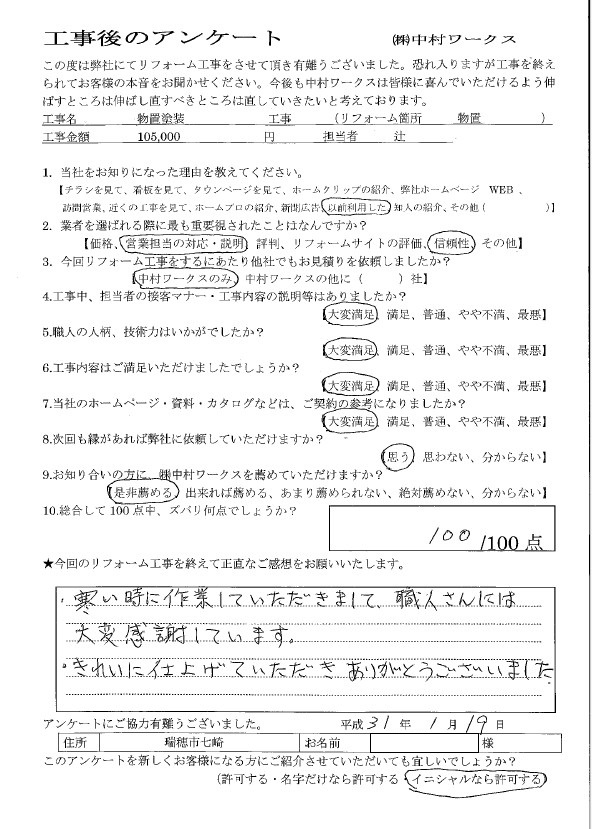 工事後のアンケート ㈱中村ワークス
この度は弊社にてリフォーム工事をさせて頂き有難うございました。恐れ入りますが工事を終え
られてお客様の本音をお聞かせください。今後も中村ワークスは皆様に喜んでいただけるよう伸
ばすところは伸ばし直すべきところは直していきたいと考えております。
工事名 物置塗装 工事 (リフォーム箇所 物置 )
工事金額 105,000 円 担当者 辻
1. 当社をお知りになった理由を教えてください。
【チラシを見て、看板を見て、タウンページを見て、ホームクリップの紹介、弊社ホームページ WEB、
訪問営業、近くの工事を見て、ホームプロの紹介、新聞広告、以前利用した、知人の紹介、その他( )】
2. 業者を選ばれる際に最も重要視されたことはなんですか?
【価格、営業担当の対応・説明、評判、リフォームサイトの評価、信頼性、その他】
3. 今回リフォーム工事をするにあたり他社でもお見積りを依頼しましたか?
【中村ワークスのみ、中村ワークスの他に( )社】
4.工事中、担当者の接客マナー・工事内容の説明等はありましたか?
【大変満足、満足、普通、やや不満、最悪】
5.職人の人柄、技術力はいかがでしたか?
【大変満足、満足、普通、やや不満、最悪】
6.工事内容はご満足いただけましたでしょうか?
【大変満足、満足、普通、やや不満、最悪】
7.当社のホームページ・資料・カタログなどは、ご契約の参考になりましたか?
【大変満足、満足、普通、やや不満、最悪】
8.次回も縁があれば弊社に依頼していただけますか?
【思う、思わない、分からない】
9.お知り合いの方に、㈱中村ワークスを薦めていただけますか?
【是非薦める、出来れば薦める、あまり薦められない、絶対薦めない、分からない】
10.総合して100点中、ズバリ何点でしょうか?
100 /100点
★今回のリフォーム工事を終えて正直なご感想をお願いいたします。
・寒い時に作業していただきまして、職人さんには
大変感謝しています。
・きれいに仕上げていただきありがとうございました
アンケートにご協力有難うございました。 平成31年1月19日
住所 瑞穂市七崎 お名前 様
このアンケートを新しくお客様になる方にご紹介させていただいても宜しいでしょうか?
(許可する・名字だけなら許可する・イニシャルなら許可する)